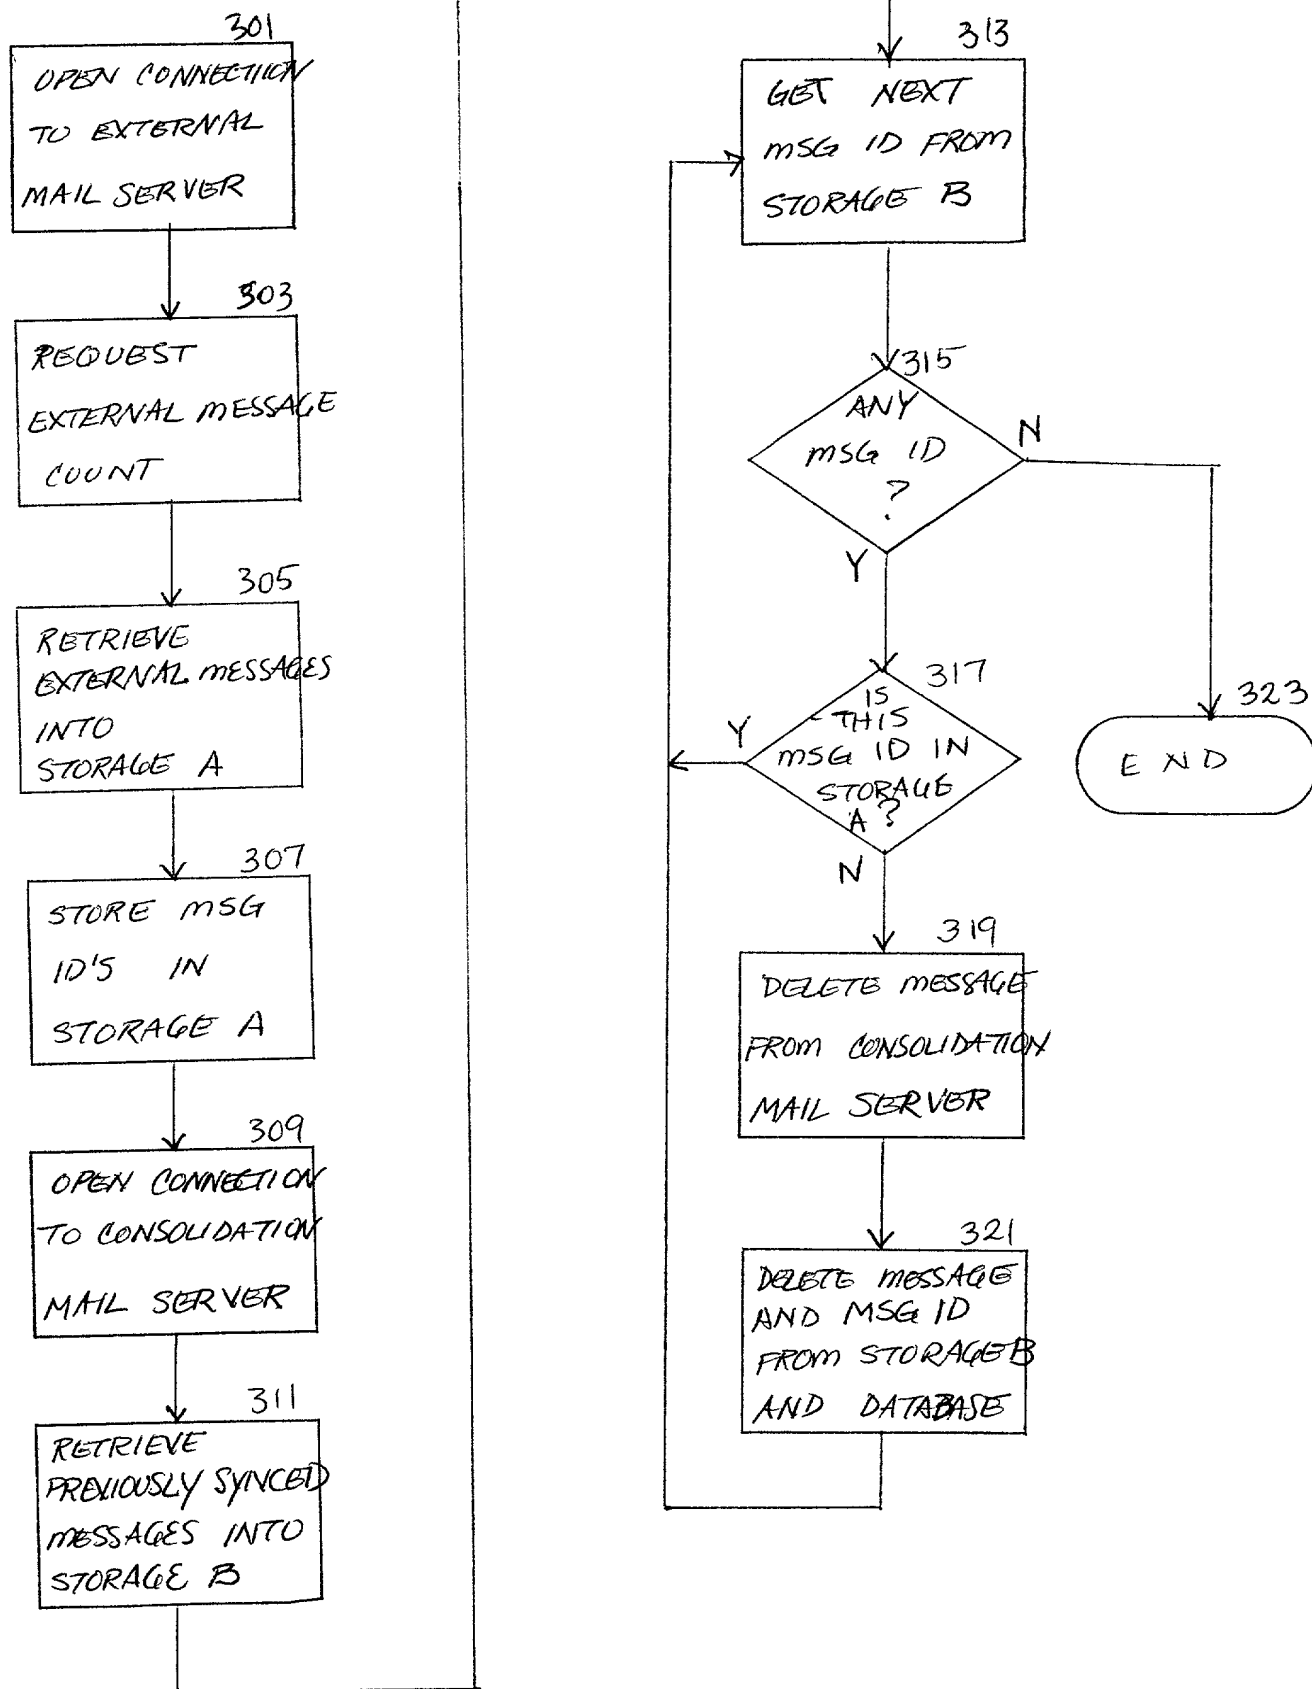 301
OPEN CONNECTION
TO EXTERNAL
MAIL SERVER
303
REQUEST
EXTERNAL MESSAGE
COUNT
305
RETRIEVE
EXTERNAL MESSAGES
INTO
STORAGE A
307
STORE MSG
ID'S IN
STORAGE A
309
OPEN CONNECTION
TO CONSOLIDATION
MAIL SERVER
311
RETRIEVE
PREVIOUSLY SYNCED
MESSAGES INTO
STORAGE B
313
GET NEXT
MSG ID FROM
STORAGE B
315
ANY
MSG ID
?
N
Y
317
IS
THIS
MSG ID IN
STORAGE
A?
Y
N
323
END
319
DELETE MESSAGE
FROM CONSOLIDATION
MAIL SERVER
321
DELETE MESSAGE
AND MSG ID
FROM STORAGE B
AND DATABASE